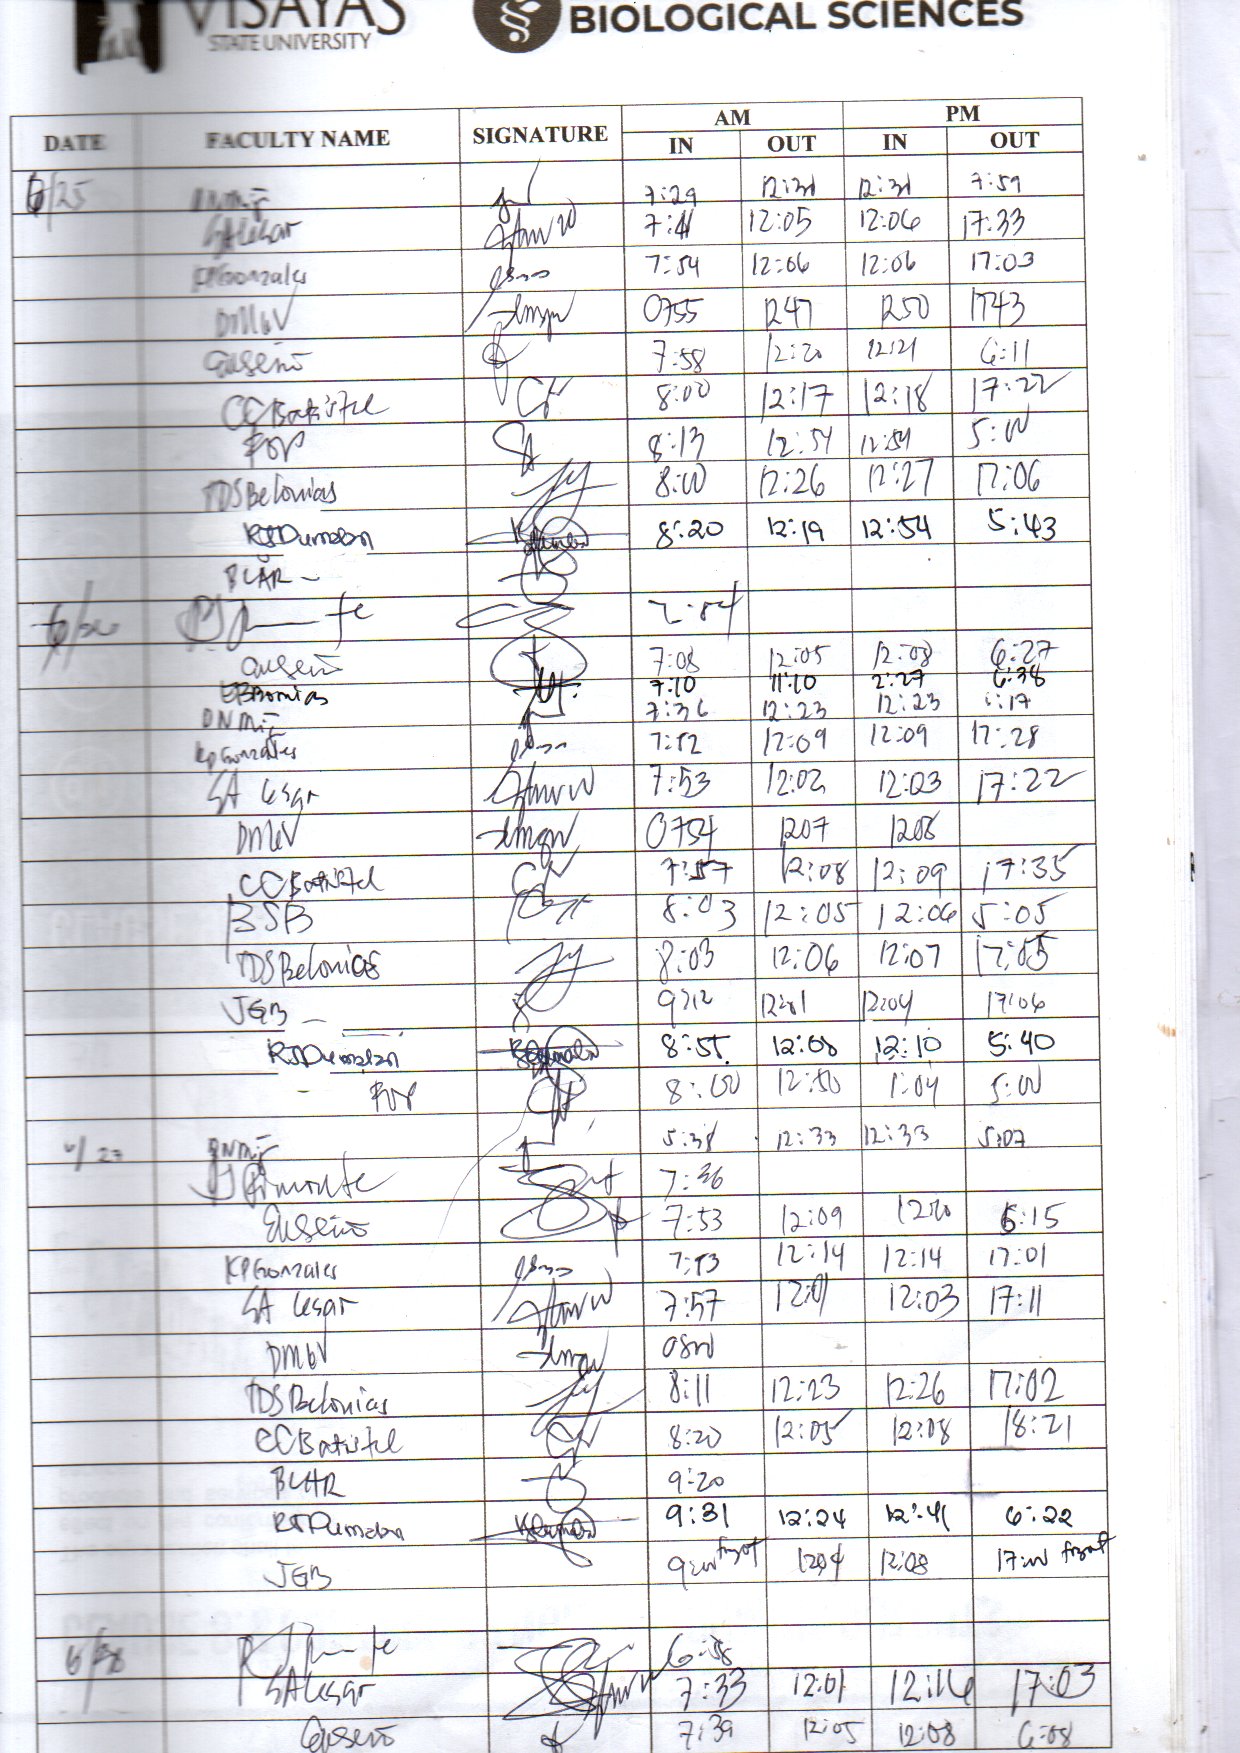 VISAYAS
STATE UNIVERSITY
BIOLOGICAL SCIENCES
DATE FACULTY NAME SIGNATURE AM PM
IN OUT IN OUT
6/25 7:29 12:31 12:31 7:59
SA Cesar 12:05 12:06 17:33
KP Gonzales 7:54 12:06 12:06 17:03
DMGV 0755 1247 1250 1743
7:58 12:20 12:21 6:11
CC Batistel 8:00 12:17 12:18 17:22
ROP 8:13 12:54 12:54 5:00
TDS Belonias 8:00 12:26 12:27 17:06
RSDumalan 8:20 12:19 12:54 5:43
BLAR -
6/26
7:08 12:05 12:08 6:27
7:10 11:10 2:27 6:38
7:36 12:23 12:23
KP Gonzales 7:52 12:09 12:09 17:28
SA Cesar 7:53 12:02 12:03 17:22
DMGV 0754 1207 1208
CC Batistel 7:57 12:08 12:09 17:35
BSB 8:03 12:05 12:06 5:05
TDS Belonias 8:03 12:06 12:07 17:05
JGB - 12:01 12:04 17:06
RSDumalan 8:55 12:08 12:10 5:40
ROP 8:00 12:50 1:04 5:00
6/27 5:38 12:33 12:33 5:07
7:36
7:53 12:09 12:10 6:15
KP Gonzales 7:53 12:14 12:14 17:01
SA Cesar 7:57 12:01 12:03 17:11
DMGV 0800
TDS Belonias 8:11 12:23 12:26 17:02
CC Batistel 8:20 12:05 12:08 18:21
BLAR 9:20
RSDumalan 9:31 12:24 12:41 6:22
JGB 9:00 forgot 1204 12:08 17:00 forgot
6/28 6:58
SA Cesar 7:33 12:01 12:16 17:03
7:39 12:05 12:08 6:08